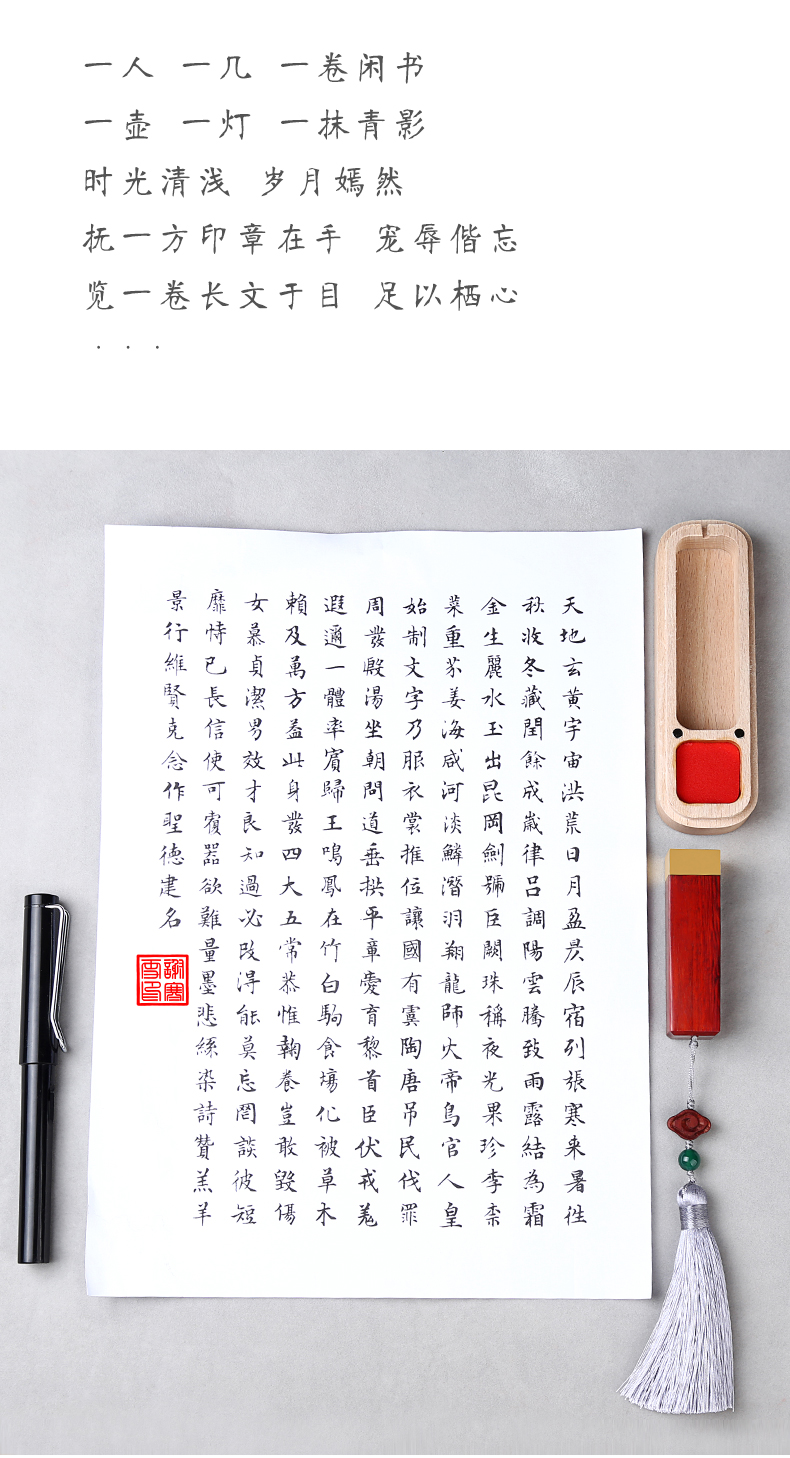 一人 一几 一卷闲书
一壶 一灯 一抹青影
时光清浅 岁月嫣然
抚一方印章在手 宠辱偕忘
览一卷长文于目 足以栖心
· · ·
天地玄黃宇宙洪荒日月盈昃辰宿列張寒来暑往
秋收冬藏閏餘成歲律呂調陽雲騰致雨露結為霜
金生麗水玉出昆岡劍號巨闕珠稱夜光果珍李柰
菜重芥姜海咸河淡鱗潛羽翔龍師火帝鳥官人皇
始制文字乃服衣裳推位讓國有虞陶唐吊民伐罪
周發殷湯坐朝問道垂拱平章愛育黎首臣伏戎羌
遐邇一體率賓歸王鳴鳳在竹白駒食場化被草木
賴及萬方蓋此身發四大五常恭惟鞠養豈敢毀傷
女慕貞潔男效才良知過必改得能莫忘罔談彼短
靡恃己長信使可覆器欲難量墨悲絲染詩贊羔羊
景行維賢克念作聖德建名